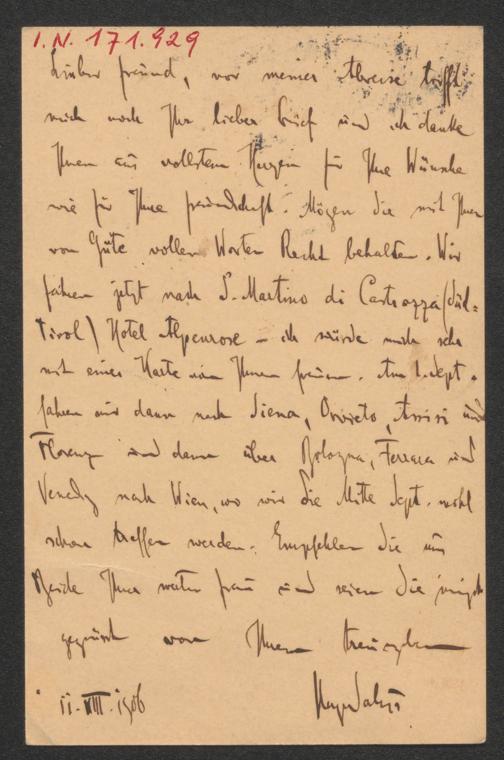 I.N. 171.929
Lieber Freund, vor meiner Abreise trifft
mich noch Ihr lieber Brief und ich danke
Ihnen aus vollstem Herzen für Ihre Wünsche
wie für Ihre Freundschaft. Mögen Sie mit Ihren
von Güte vollen Worten Recht behalten. Wir
fahren jetzt nach S. Martino di Castrozza (Süd-
tirol) Hotel Alpenrose – ich würde mich sehr
mit einer Karte von Ihnen freuen. Am 1. Sept.
fahren wir dann nach Siena, Orvieto, Assisi und
Florenz und dann über Bologna, Ferrara und
Venedig nach Wien, wo wir Sie Mitte Sept. wohl
schon treffen werden. Empfehlen Sie uns
Beide Ihrer werten Frau und seien Sie innigst
gegrüsst von Ihrem treuergebenen
11. VIII. 1906